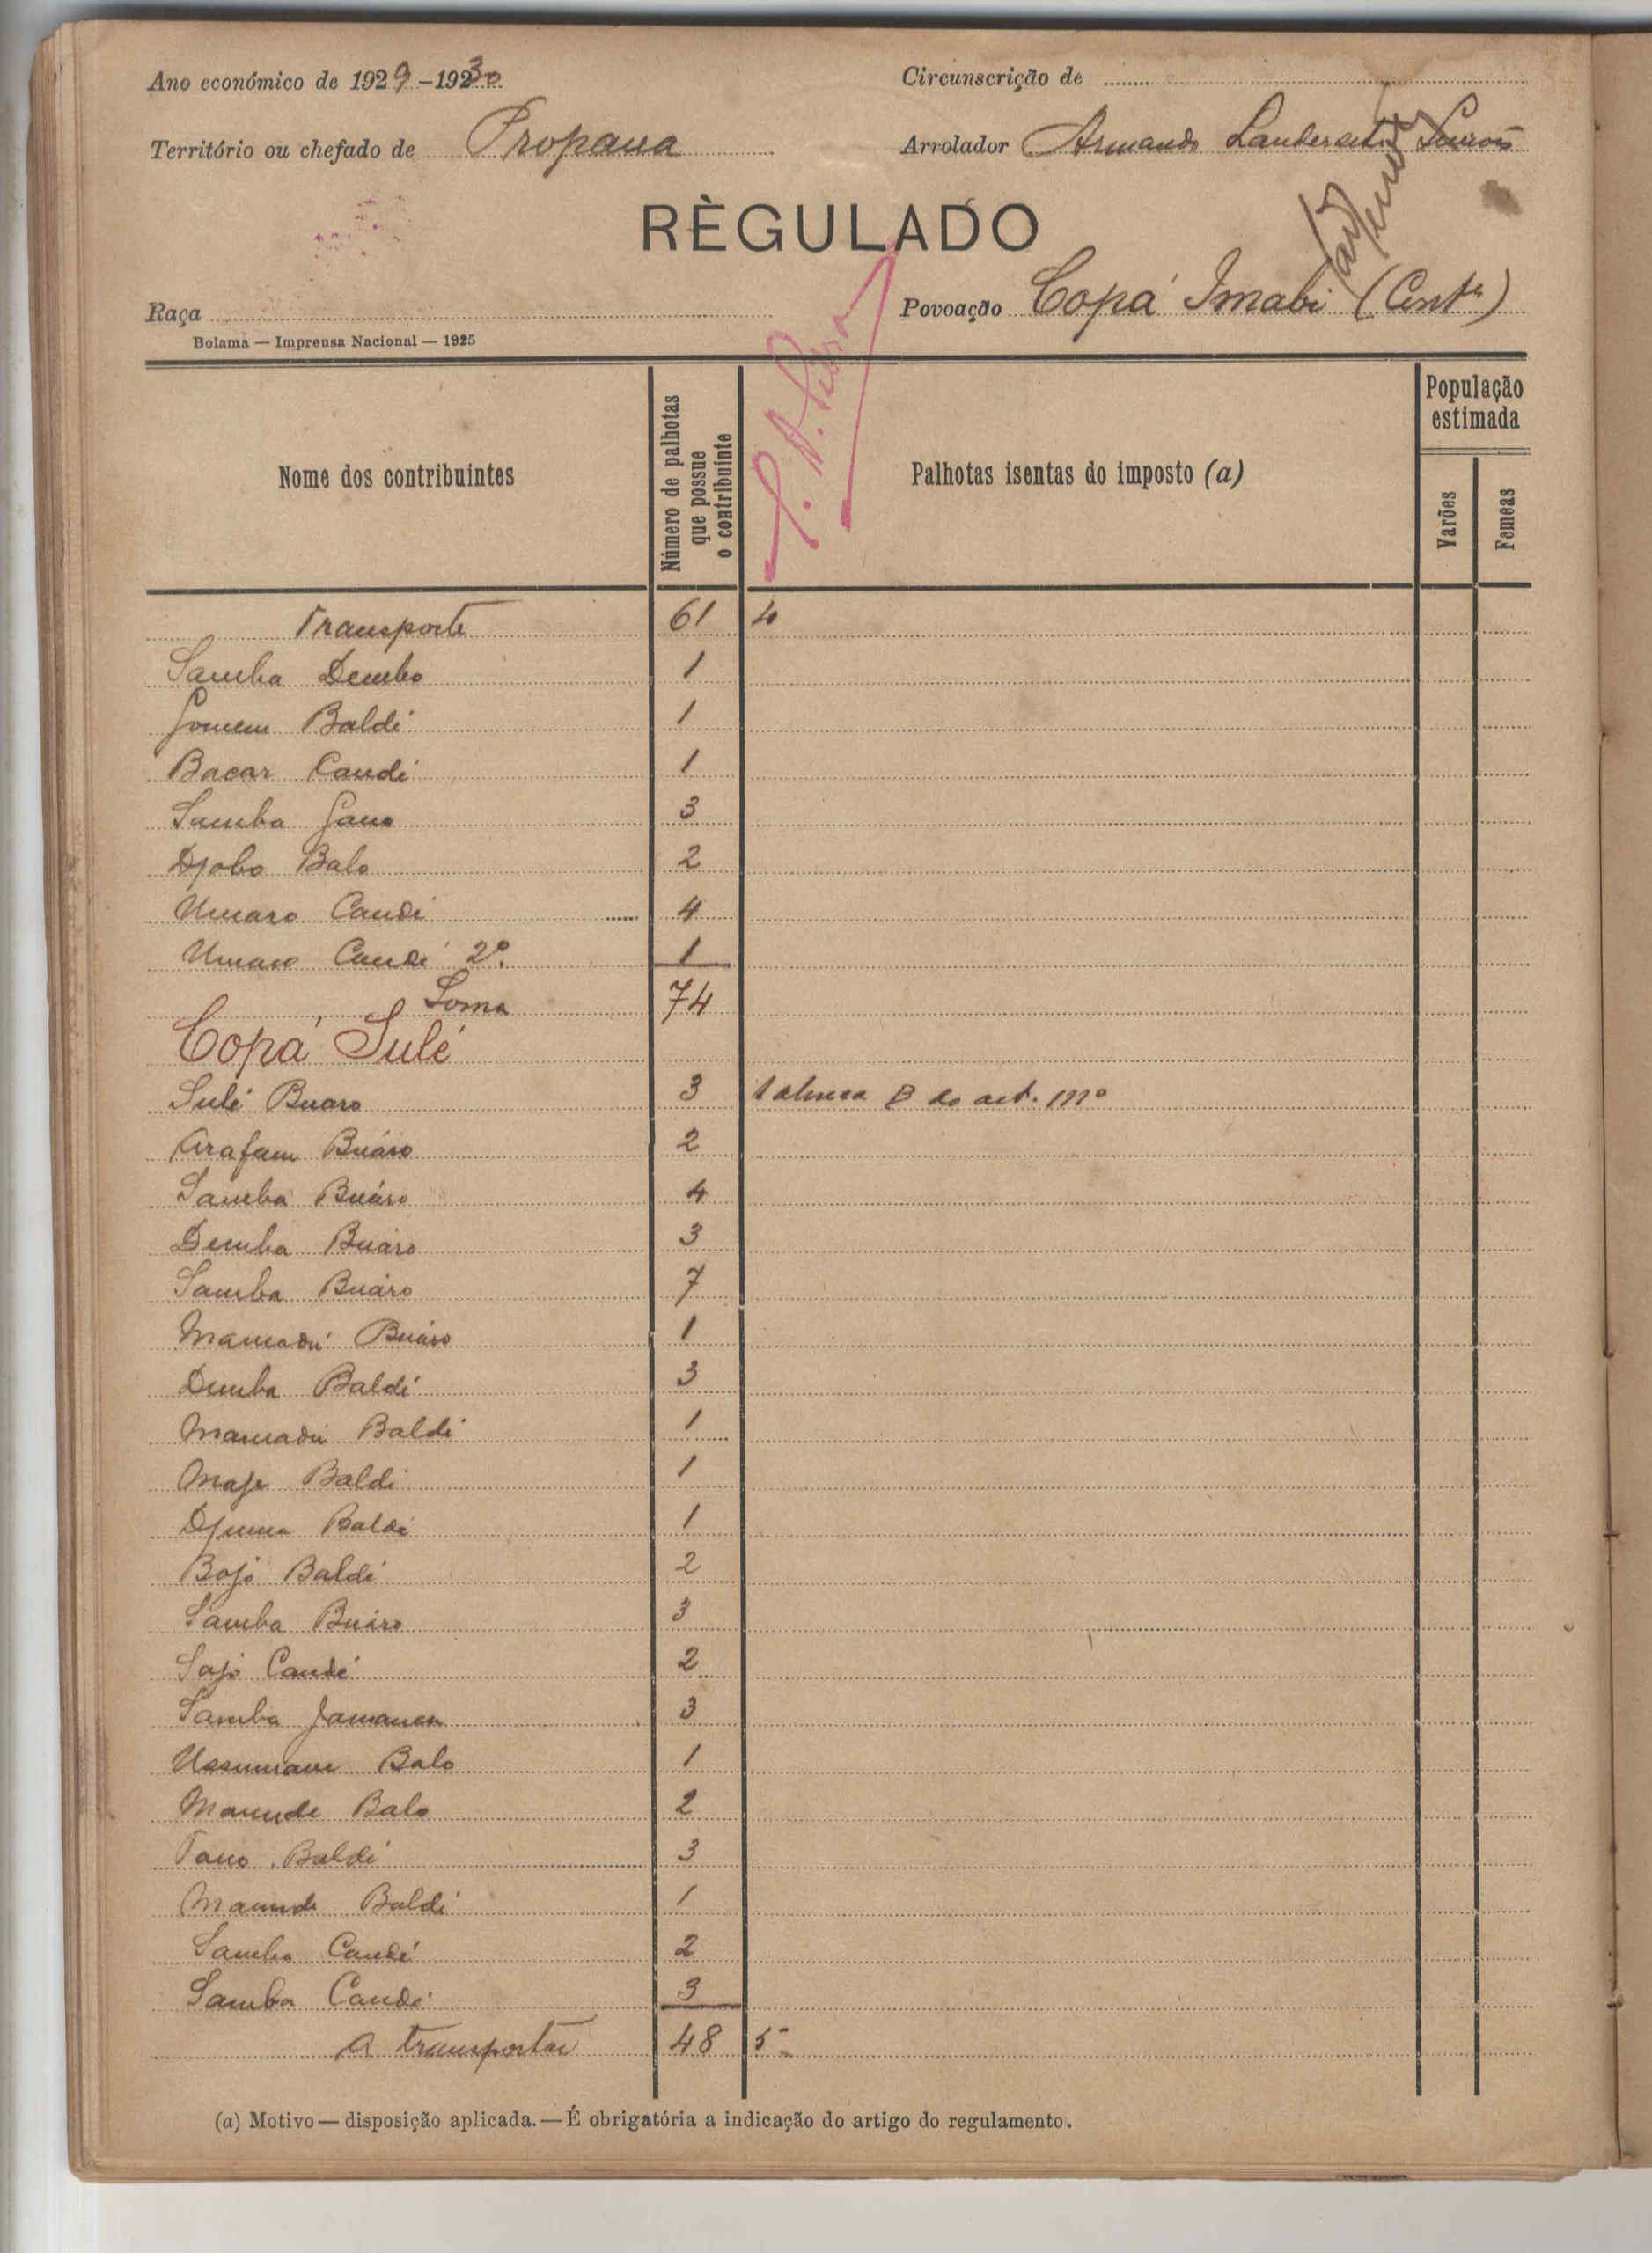 Ano económico de 1929-1930
Circunscrição de
Território ou chefado de Propana
Arrolador Armando
RÈGULADO
Raça
Povoação Copá Imabi (Contª)
Bolama — Imprensa Nacional — 1925
Nome dos contribuintes
Número de palhotas que possue o contribuinte
Palhotas isentas do imposto (a)
População estimada
Varões
Femeas
Transporte 61 4
Samba Dembo 1
Gomem Baldi 1
Bacar Candi 1
Samba Gano 3
Djobo Balo 2
Umaro Candi 4
Umaro Candi 2º 1
Soma 74
Copá Sulé
Sulé Buaro 3 1 alinea B do art. 111º
Arafam Buáro 2
Samba Buáro 4
Demba Buáro 3
Samba Buáro 7
Mamadú Buáro 1
Demba Baldé 3
Mamadú Baldé 1
Maje Baldé 1
Djuma Baldé 1
Bojo Baldé 2
Samba Buáro 3
Sajo Candé 2
Samba Jamanca 3
Ussumane Balo 1
Maunde Balo 2
Tano Baldé 3
Maunde Baldé 1
Samba Candé 2
Samba Candé 3
A transportar 48 5
(a) Motivo — disposição aplicada. — É obrigatória a indicação do artigo do regulamento.